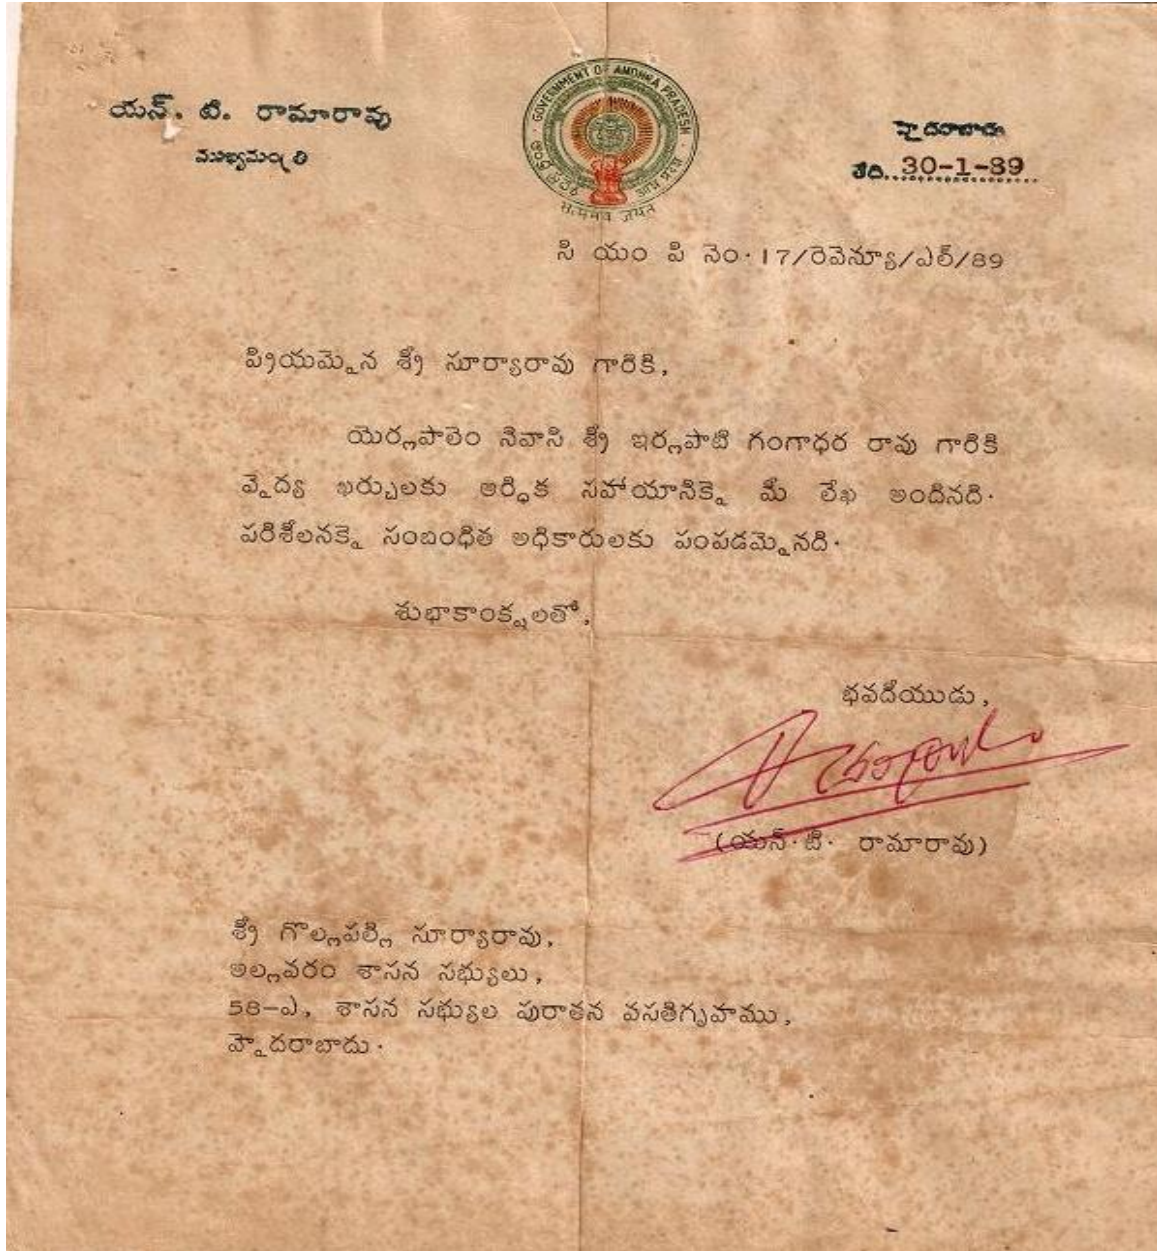 యన్. టి. రామారావు
ముఖ్యమంత్రి
GOVERNMENT OF ANDHRA PRADESH
సత్యమేవ జయతే
హైదరాబాదు
తేది..30-1-89
సి యం పి నెం.17/రెవెన్యూ/ఎల్/89
ప్రియమైన శ్రీ సూర్యారావు గారికి,
యెర్లపాలెం నివాసి శ్రీ ఇర్లపాటి గంగాధర రావు గారికి
వైద్య ఖర్చులకు ఆర్ధిక సహాయానికై మీ లేఖ అందినది.
పరిశీలనకై సంబంధిత అధికారులకు పంపడమైనది.
శుభాకాంక్షలతో,
భవదీయుడు,
(యన్.టి. రామారావు)
శ్రీ గొల్లపల్లి సూర్యారావు,
అల్లవరం శాసన సభ్యులు,
58-ఎ, శాసన సభ్యుల పురాతన వసతిగృహము,
హైదరాబాదు.